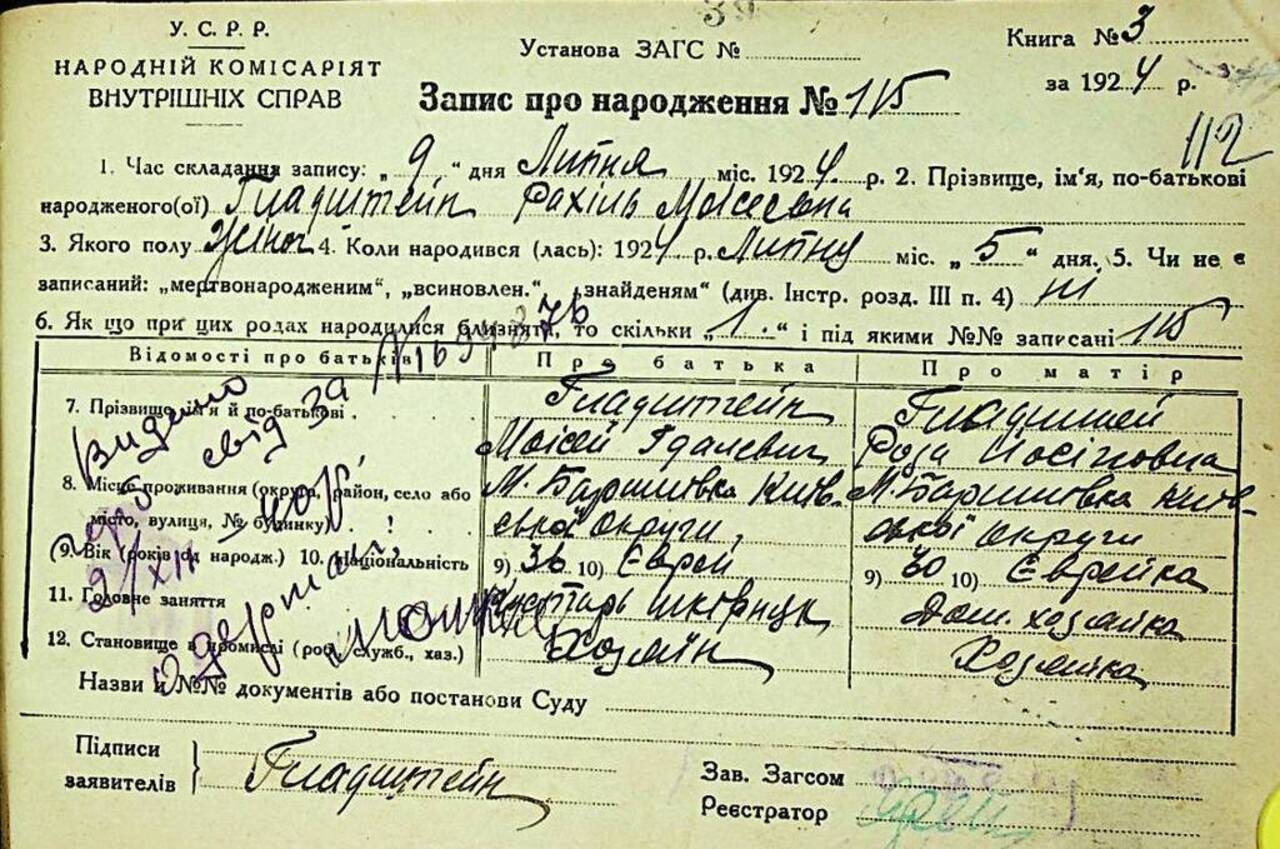 У. С. Р. Р.
НАРОДНІЙ КОМІСАРІЯТ
ВНУТРІШНІХ СПРАВ
39
Установа ЗАГС №
Книга № 3
за 1924 р.
Запис про народження № 115
112
1. Час складання запису: „ 9 “ дня Липня міс. 1924. р. 2. Прізвище, ім'я, по-батькові
народженого(ої) Гладштейн Рахіль Моісеевна
3. Якого полу жіноч 4. Коли народився (лась): 1924 р. Липня міс. „ 5 “ дня. 5. Чи не є
записаний: „мертвонародженим“, „всиновлен.“ „знайденям“ (див. Інстр. розд. III п. 4) ні
6. Як що при цих родах народилися близнята, то скільки „ 1. “ і під якими №№ записані 115
Відомості про батьків
Про батька
Про матір
7. Прізвище ім'я й по-батькові
Гладштейн
Моісей Гдалевич
Гладштей
Роза Йосіповна
8. Місце проживання (округа, район, село або
місто, вулиця, № будинку)
М. Баришівка Київ-
ської округи,
М. Баришівка Київ-
ської округи
9. Вік (років од народж.) 10. Національність
9) 36 10) Єврей
9) 30 10) Єврейка
11. Головне заняття
Кустарь
Дом. хозяйка
12. Становище в промислі (роб., служб., хаз.)
Хозяїн
Хозяйка
Видано
свід за №
Назви й №№ документів або постанови Суду
Підписи
заявителів
Гладштейн
Зав. Загсом
Реєстратор